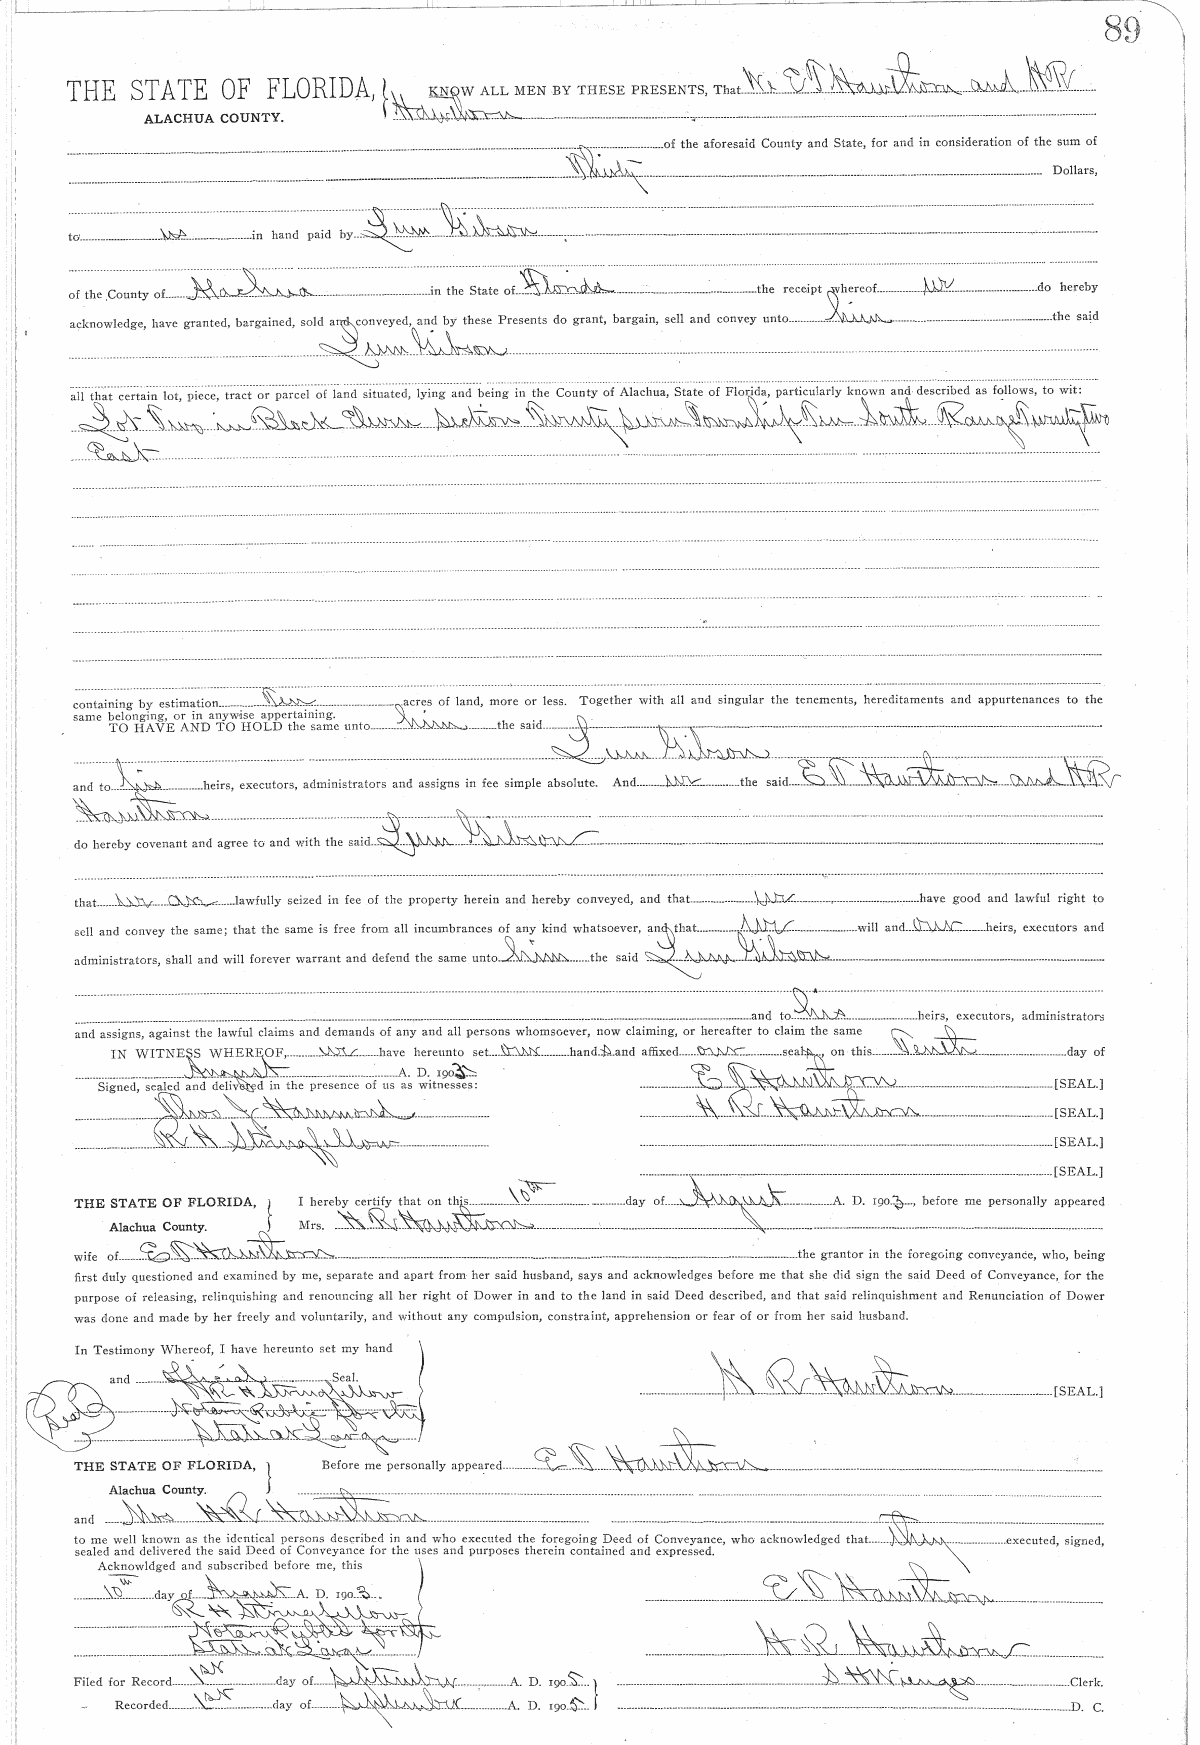 89
THE STATE OF FLORIDA, KNOW ALL MEN BY THESE PRESENTS, That We E T Hawthorn and H R
ALACHUA COUNTY. Hawthorn
of the aforesaid County and State, for and in consideration of the sum of
Thirty Dollars,
to us in hand paid by Lum Gibson
of the County of Alachua in the State of Florida the receipt whereof we do hereby
acknowledge, have granted, bargained, sold and conveyed, and by these Presents do grant, bargain, sell and convey unto him the said
Lum Gibson
all that certain lot, piece, tract or parcel of land situated, lying and being in the County of Alachua, State of Florida, particularly known and described as follows, to wit:
Lot Two in Block Eleven Section Twenty seven Township Ten South Range Twenty two
East
containing by estimation Ten acres of land, more or less. Together with all and singular the tenements, hereditaments and appurtenances to the
same belonging, or in anywise appertaining.
TO HAVE AND TO HOLD the same unto him the said
Lum Gibson
and to his heirs, executors, administrators and assigns in fee simple absolute. And we the said E T Hawthorn and H R
Hawthorn
do hereby covenant and agree to and with the said Lum Gibson
that we are lawfully seized in fee of the property herein and hereby conveyed, and that we have good and lawful right to
sell and convey the same; that the same is free from all incumbrances of any kind whatsoever, and that we will and our heirs, executors and
administrators, shall and will forever warrant and defend the same unto him the said Lum Gibson
and to his heirs, executors, administrators
and assigns, against the lawful claims and demands of any and all persons whomsoever, now claiming, or hereafter to claim the same
IN WITNESS WHEREOF, we have hereunto set our hand s and affixed our seal s on this Tenth day of
August A. D. 190
Signed, sealed and delivered in the presence of us as witnesses: E T Hawthorn [SEAL.]
Thos J Hammond H R Hawthorn [SEAL.]
R H Stringfellow [SEAL.]
[SEAL.]
THE STATE OF FLORIDA, I hereby certify that on this 10th day of August A. D. 1903, before me personally appeared
Alachua County. Mrs. H R Hawthorn
wife of E T Hawthorn the grantor in the foregoing conveyance, who, being
first duly questioned and examined by me, separate and apart from her said husband, says and acknowledges before me that she did sign the said Deed of Conveyance, for the
purpose of releasing, relinquishing and renouncing all her right of Dower in and to the land in said Deed described, and that said relinquishment and Renunciation of Dower
was done and made by her freely and voluntarily, and without any compulsion, constraint, apprehension or fear of or from her said husband.
In Testimony Whereof, I have hereunto set my hand
and official Seal. H R Hawthorn [SEAL.]
R H Stringfellow
Seal Notary Public for the
State at Large
THE STATE OF FLORIDA, Before me personally appeared E T Hawthorn
Alachua County.
and Mrs H R Hawthorn
to me well known as the identical persons described in and who executed the foregoing Deed of Conveyance, who acknowledged that they executed, signed,
sealed and delivered the said Deed of Conveyance for the uses and purposes therein contained and expressed.
Acknowldged and subscribed before me, this
10th day of August A. D. 1903. E T Hawthorn
R H Stringfellow
Notary Public for the
State at Large H R Hawthorn
Filed for Record 1st day of September A. D. 1905 S H Wienges Clerk.
Recorded 1st day of September A. D. 1905 D. C.